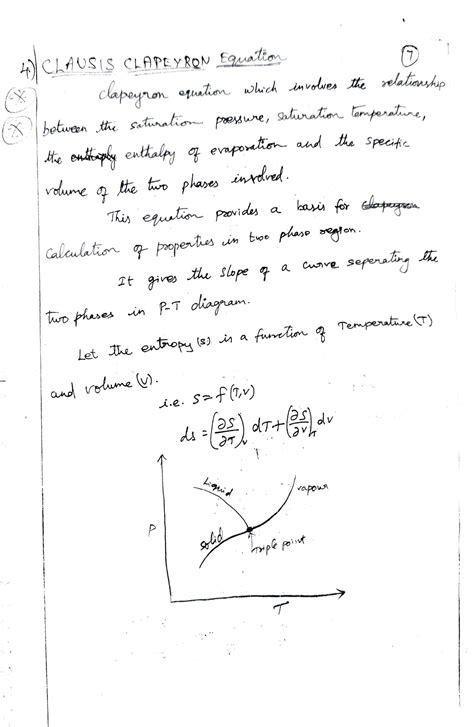 7
4) CLAUSIS CLAPEYRON Equation
Clapeyron equation which involves the relationship
between the saturation pressure, saturation temperature,
the enthalpy of evaporation and the specific
volume of the two phases involved.
This equation provides a basis for
calculation of properties in two phase region.
It gives the slope of a curve seperating the
two phases in P-T diagram.
Let the entropy (s) is a function of Temperature (T)
and volume (v).
i.e. S = f(T,v)
ds = (∂S/∂T)v dT + (∂S/∂v)T dv
Liquid
vapour
P
solid
Triple point
T